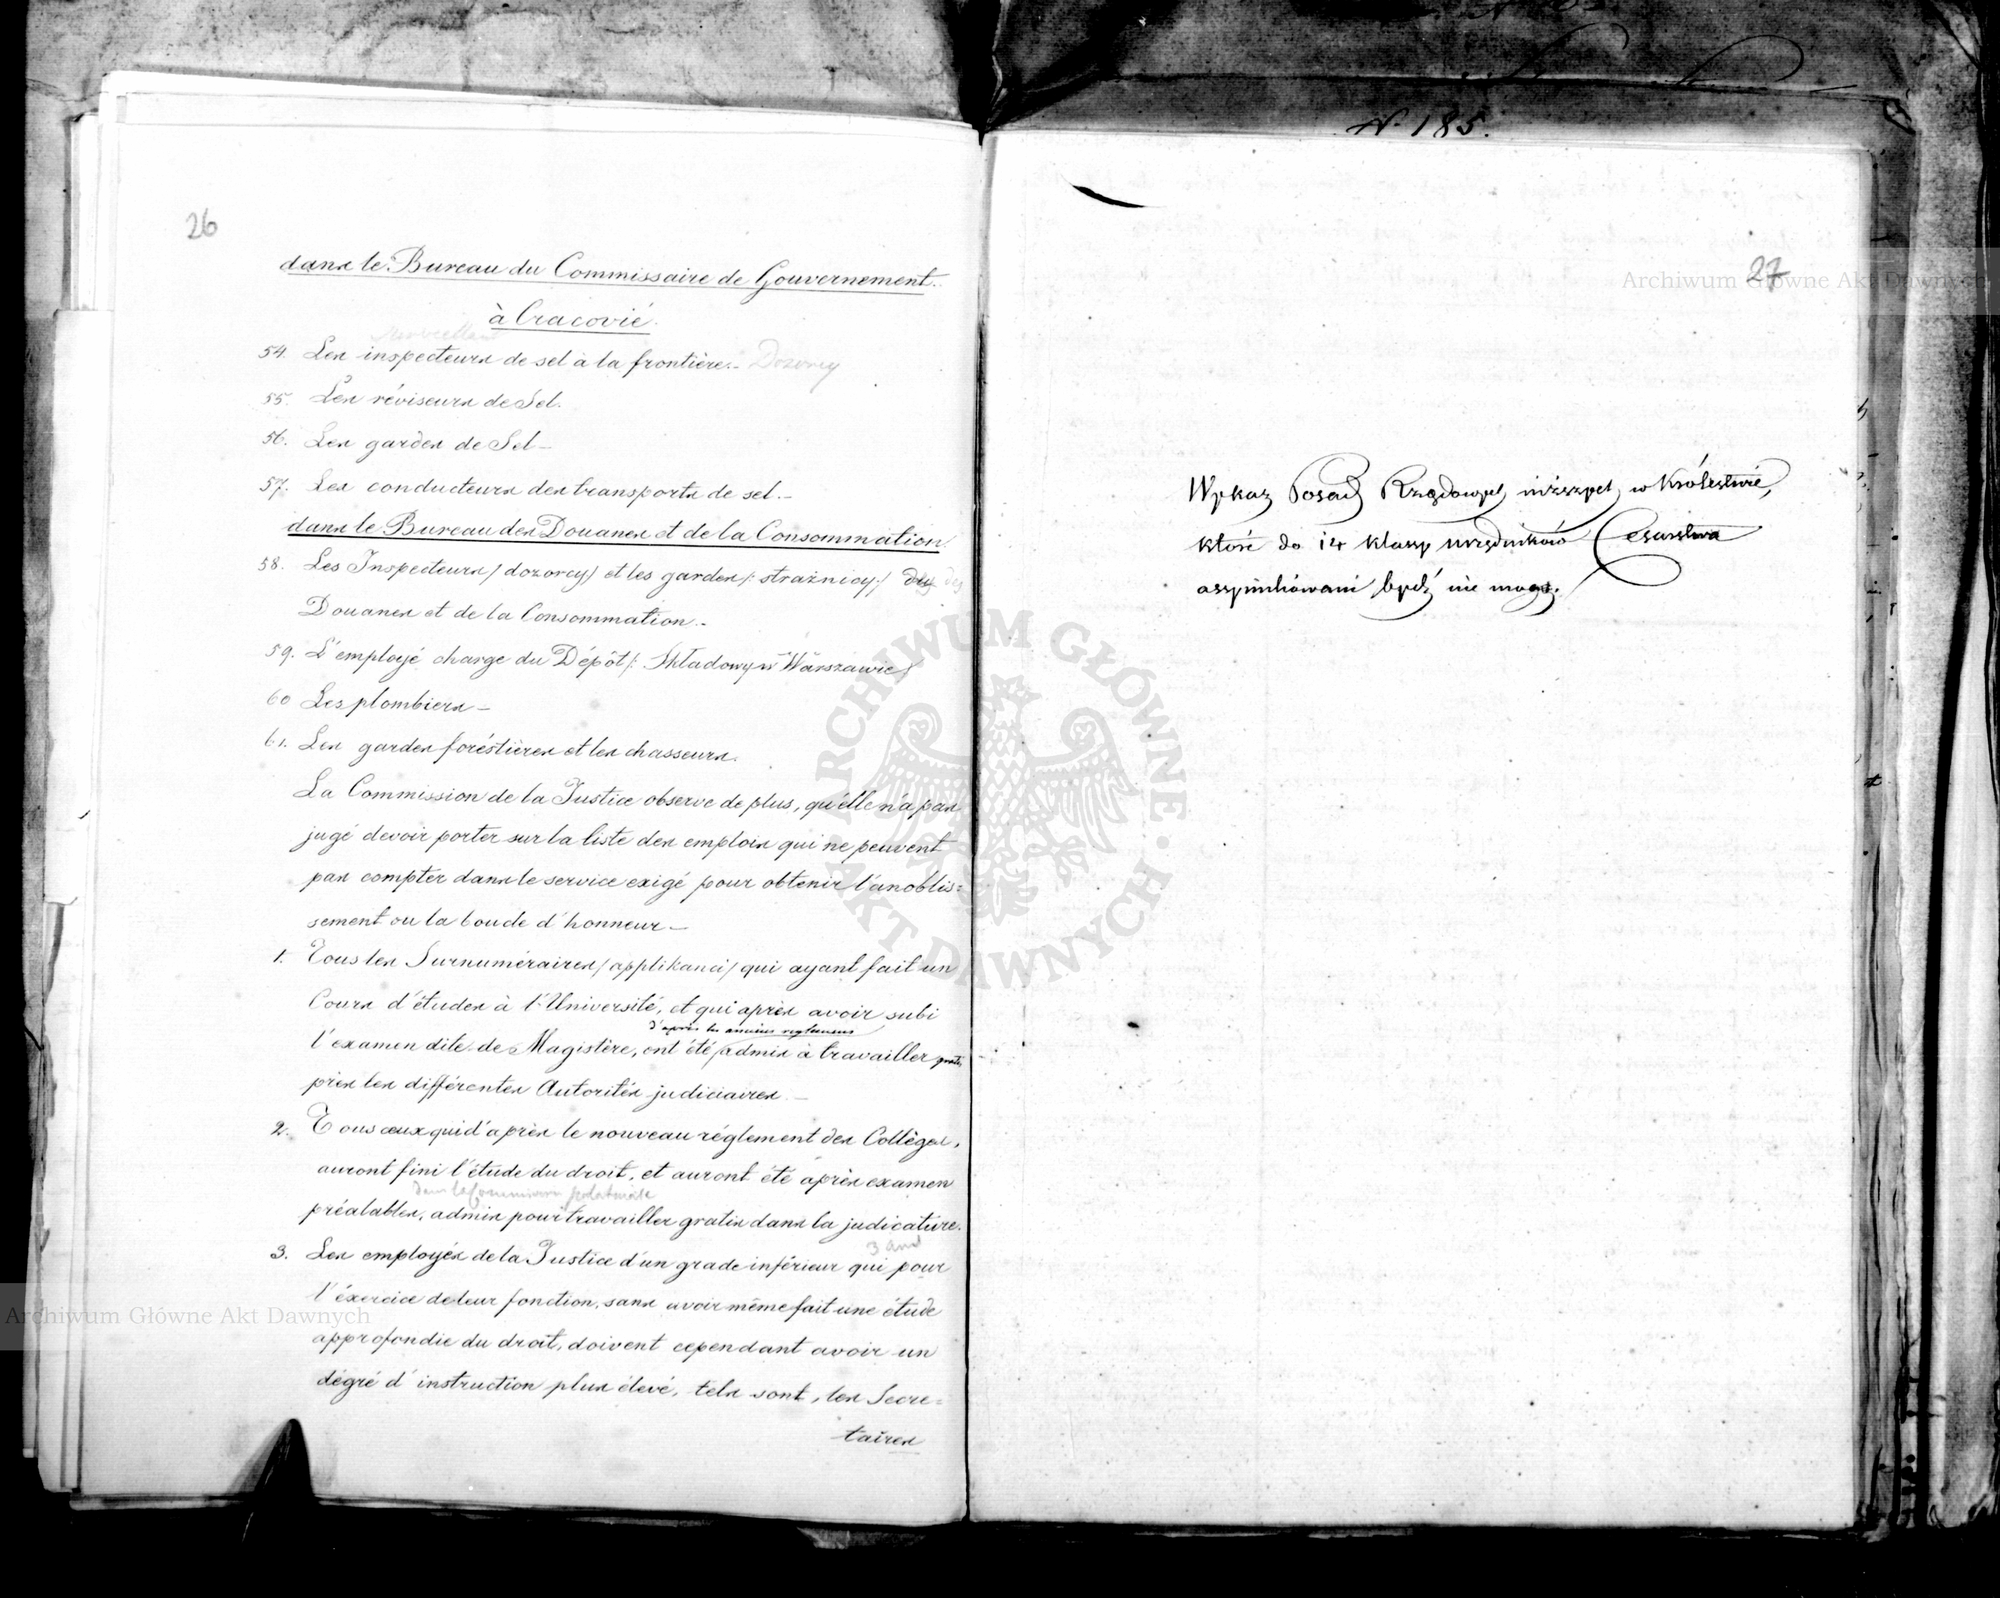 26
dans le Bureau du Commissaire de Gouvernement.
à Cracovie.
54. Les inspecteurs de sel à la frontière. - Dozorcy
55. Les réviseurs de Sel.
56. Les gardes de Sel -
57. Les conducteurs des transports de sel. -
dans le Bureau des Douanes et de la Consommation
58. Les Inspecteurs /dozorcy/ et les gardes /: strażnicy :/ des
Douanes et de la Consommation. -
59. L'employé charge du Dépôt /: Składowy w Warszawie /
60 Les plombiers -
61. Les gardes foréstières et les chasseurs.
La Commission de la Justice observe de plus, qu'elle n'a pas
jugé devoir porter sur la liste des emplois qui ne peuvent
pas compter dans le service exigé pour obtenir l'anoblis=
sement ou la boucle d'honneur -
1. Tous les Surnuméraires /applikanci/ qui ayant fait un
Cours d'études à l'Université, et qui après avoir subi
d'après les anciens reglemens
l'examen dite de Magistère, ont été admis à travailler gratis
près les différentes Autorités judiciaires -
2. Tous ceux qui d'après le nouveau réglement des Collèges,
auront fini l'étude du droit, et auront été après examen
dans les
préalables, admis pour travailler gratis dans la judicature.
3 ans
3. Les employés de la Justice d'un grade inférieur qui pour
l'éxercice de leur fonction, sans avoir même fait une étude
approfondie du droit, doivent cependant avoir un
dégré d'instruction plus élevé, tels sont, les Secre=
taires
N. 185.
27
Wykaz Posad Rządowych niższych w Królestwie,
które do 14 klassy urzędników Cesarstwa
assymilowani bydź nie mogą.
Archiwum Główne Akt Dawnych
Archiwum Główne Akt Dawnych
ARCHIWUM GŁÓWNE AKT DAWNYCH